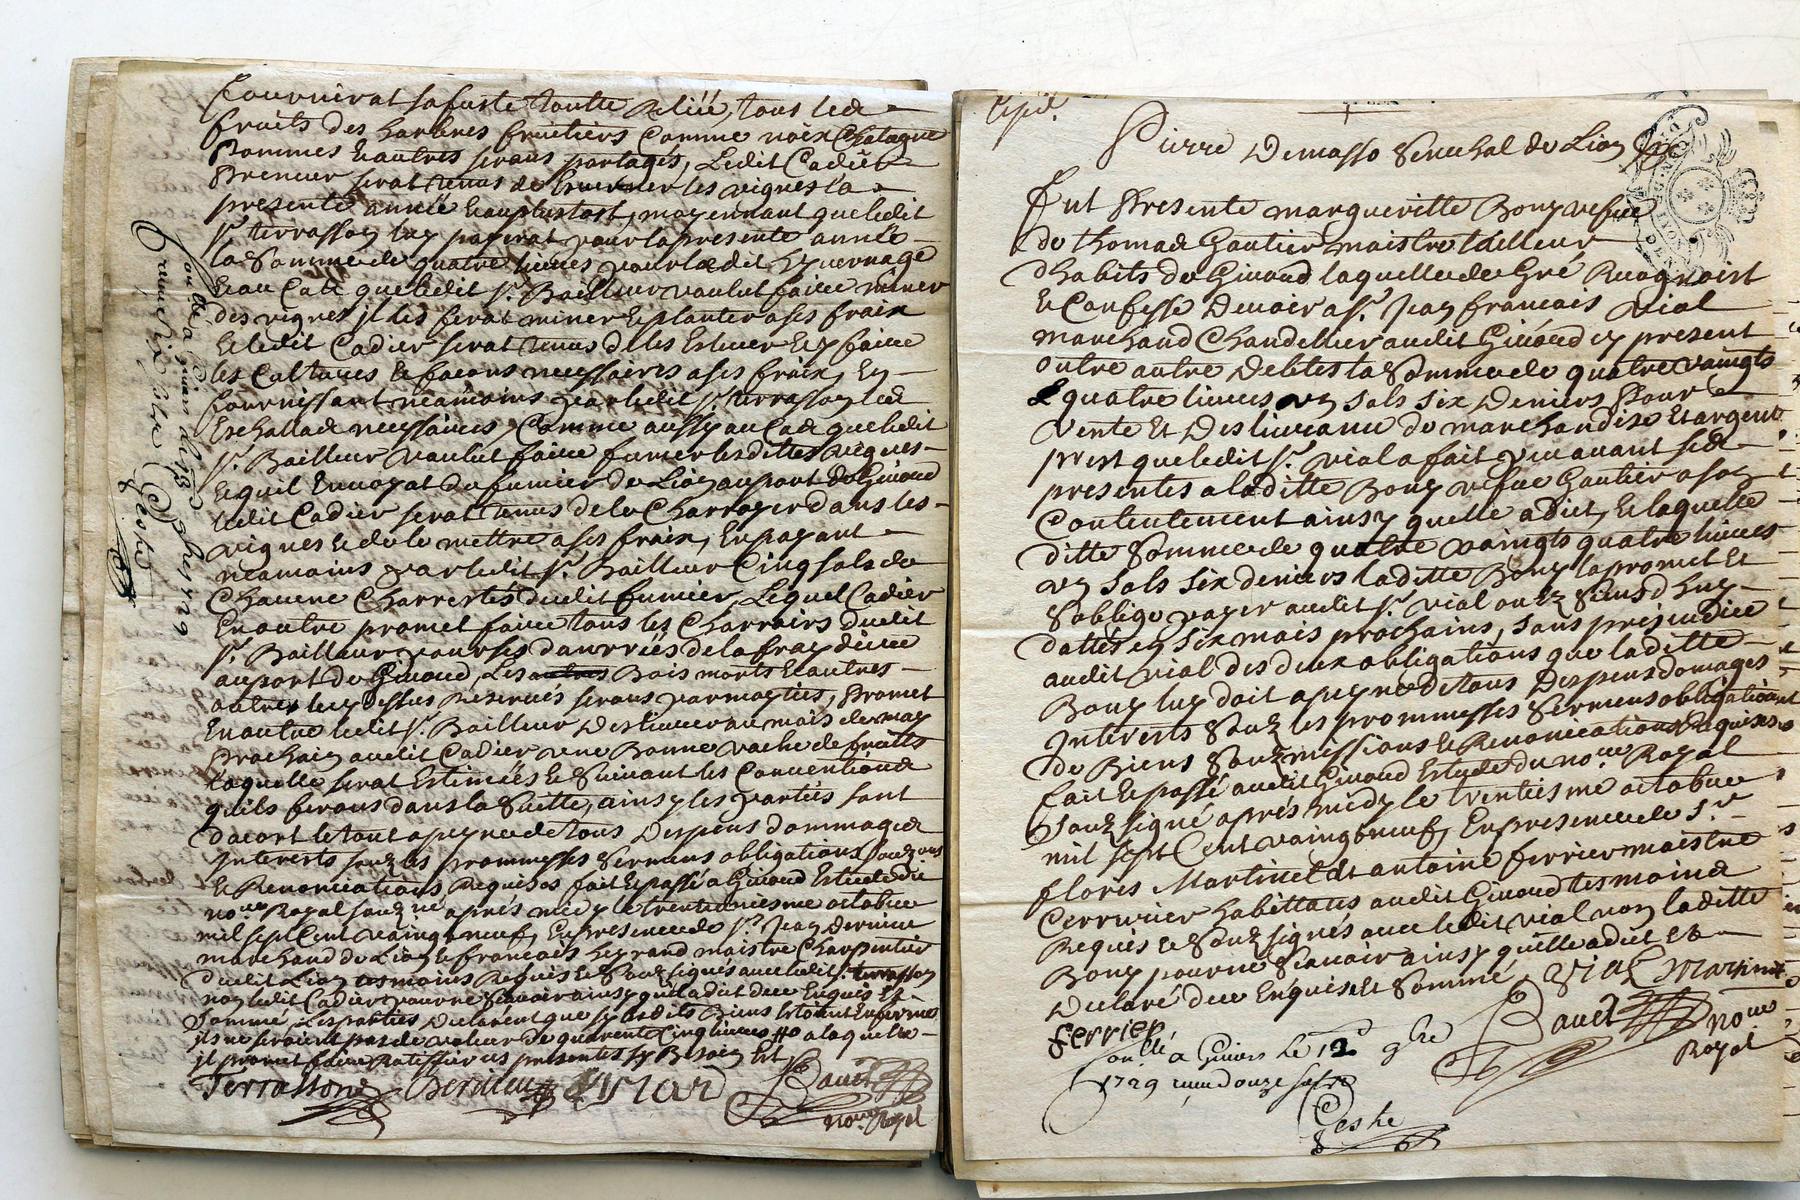 fournirat sa fuste toutte Reliéé, tous led
fruits des harbres fruitiers Comme noix Chatagne
Pommes & autres seront partagés, Ledit Cadier
Preneur serat tenus de hyverner les vignes la
presente année & au plustost, moyennant que ledit
sr. terrasson luy payerat pour la presente année
la Somme de quatre livres pour ledit hyvernage
& au Cas que ledit sr. Bailleur voulut faire miner
des vignes jl les ferat miner & planter a ses fraix
& ledit Cadier serat tenus de les Eslever & y faire
les Cultures & facons necessaires a ses fraix, En
fournissant neamoins par ledit sr. terrasson led
Eschallad necessaires, Comme aussy au Cas que ledit
sr. Bailleur voulut faire fumer lesdittes vignes
& quil Envoyat du fumier de Lion au port de Givord
ledit Cadier serat tenus de le Charroyer dans les
vignes & de le mettre a ses fraix, En payant
neamoins par ledit sr. Bailleur Cinq sols de
Chacune Charretés dudit fumier, Lequel Cadier
En outre promet faire tous les Charrois dudit
sr. Bailleur pour ses danrriés de la fraydiere
au port de Givord, Les autres Bois morts & autres
autres Cy dessus Reservés serons par moytiés, Promet
En outre ledit sr. Bailleur Deslivrer au mois de may
prochain audit Cadier une Bonne vache de fruitts
laquelle serat Estimées & Suivant les Conventiond
quils ferons dans la Suitte, ainsy les partiés sont
dacort le tout a peyne de tous Despens dommaged
Interests souz les prommesses Sermens obligations
& Renonciations Requises fait & passé a Givord Estude du
nore. Royal souzné. aprés midy le trentiesme octobre
mil sept Cent vaingtneuf, En presence de sr. Jean Dervieu
marchand de Lion & francois Leymard maistre Charpentier
dudit Lion tesmoins Requis & Souzsignés avec ledit sr. terrasson
non ledit Cadier pour ne Scavoir ainsy quil a dict de ce Enquis &
Sommé, Les parties Declarent que sy lesdits Biens Estoient Enfermé
jls ne seroient pas de valeur de quarente Cinq livres a laquelle
jl promet faire Ratiffier ces presentes sy Besoin Est
Terrasson Dervieu Eymar Bauet
nore. Royal
Con llé a Givors le 12
9bre 1729
Geshe
Exped.
Pierre Demasso Senechal de Lion
Fut Presente margueritte Bony vefve
de thomad Gautier maistre tailleur
dhabits de Givord laquelle de Gré Recognoist
& Confesse Devoir a sr. Jean francois Vial
marchand Chandellier audit Givord cy present
outre autre Debtes la Somme de quatre vaingts
& quatre livres un sols six Deniers Pour
vente Et Deslivrance de marchandise Et argent
prest que ledit sr. Vial a fait cy avant sed
presentes a laditte Bony vefve Gautier a son
Contentement ainsy quelle a dict, & laquelle
ditte Somme de quatre vaingts quatre livres
un sols six deniers laditte Bony la promet Et
Soblige payer audit sr. vial ou ez siens dhuy
dattés en six mois prochains, sans prejudice
audit Vial des deux obligations que laditte
Bony luy doit a peyne de tous Despens domages
Interests Souz les prommesses Sermens obligations
de Biens Souzmissions & Renonciations Requises
fait & passé audit Givord Estude du nore. Royal
Souzsigné aprés midy le trentiesme octobre
mil sept Cent vaingtneuf, En presence de Sr.
floris Martinet & antoine ferrier maistre
Cerrurier habittans audit Givord tesmoind
Requis & Souzsignés avec ledit vial non laditte
Bony pour ne Scavoir ainsy quelle a dict Et
Declaré de ce Enquise & Sommé, Vial Martinet
ferrier Bauet nore
Royal
Con llé a Givors Le 12 9bre
1729 receu douze sols
Geshe